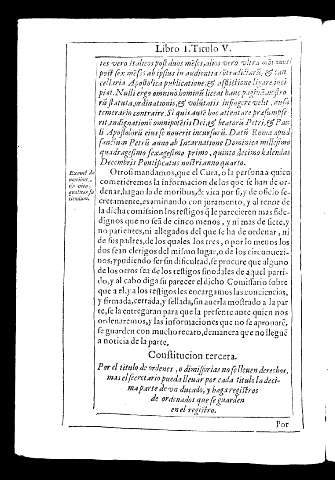 Libro I. Titulo V.
tes vero Italicos post duos mẽses, alios vero vltra mõt
post sex mẽses ab ipsius in audiẽtia cõtradictarũ, & can
cellaria Apostolica publicatione, & afsistione ligare inci
piat. Nulli ergo omnino hominũ liceat hanc paginã nostro
rũ statuta, ordinationis, & volũtatis infrigere vel ei ausu
temerario contraire. Si quis autẽ hoc attentare presumpse
rit, indignationẽ omnipotẽtis Dei, & beatorũ Petri, & Pau
li Apostolorũ eius se nouerit incursurũ. Datũ Romæ apud
sanctum Petrũ anno ab Incarnatione Dominica millesimo
quadragesimo sexagesimo primo, quinto decimo kalendas
Decembris Pontificatus nostri anno quarto.
Otrosi mandamos, que el Cura, o la persona a quien
cometieremos la informacion de los que se han de or-
denar, hagan la de moribus, & vita por si, y de oficio se-
cretamente, examinando con juramento, y al tenor de
la dicha comision los testigos q̃ le parecieren mas fide-
dignos que no seã de cinco menos, y ni mas de siete, y
no parientes, ni allegados del que se ha de ordenar, ni
de sus padres, de los quales los tres, o por lo menos los
dos sean clerigos del mismo lugar, o de los circunuezi-
nos, y pudiendo ser sin dificultad, se procure que alguno
de los otros sea de los testigos sinodales de aquel parti-
do, y al cabo diga su parecer el dicho Comissario sobre
que a el, y a los testigos les encargamos las conciencias,
y firmada, cerrada, y sellada, sin auerla mostrado a la par
te, se la entregaran para que la presente ante quien nos
ordenaremos, y las informaciones que no se aprouarẽ,
se guarden con mucho recato, demanera que no llegue
a noticia de la parte.
Constitucion tercera.
Por el titulo de ordenes, o dimissorias no se lleuen derechos,
mas el secretario pueda lleuar por cada titulo la deci-
ma parte de vn ducado, y haga registros
de ordenados que se guarden
en el registro.
Por